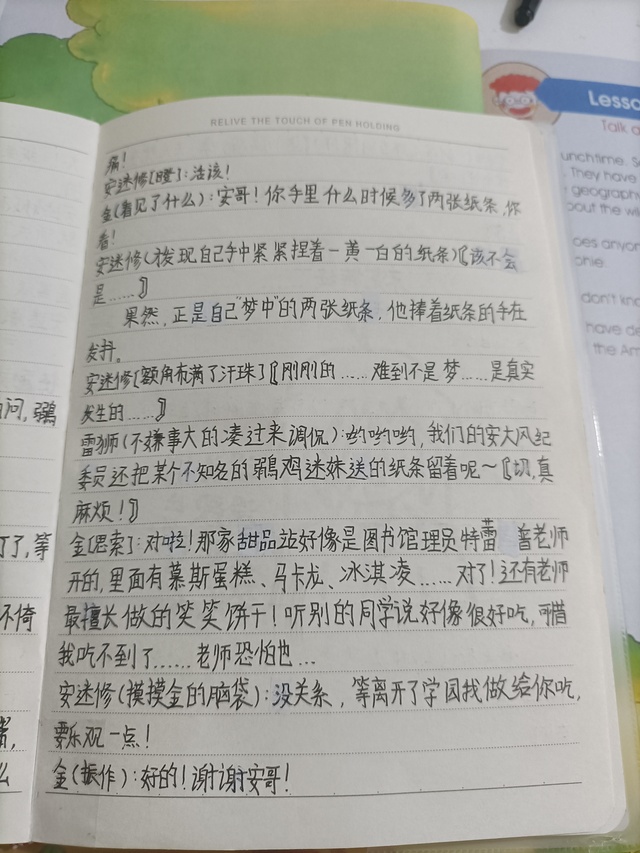 RELIVE THE TOUCH OF PEN HOLDING
Lesso
Talk a
unchtime. S
They have
geograph
out the w
oes anyon
onie.
don't know
have de
the Am
问, 弱
了, 等
不倚
么
痛!
安迷修[瞪]: 活该!
金(看见了什么): 安哥! 你手里什么时候多了两张纸条, 你
看!
安迷修(发现自己手中紧紧捏着一黄一白的纸条)〖该不会
是……〗
果然, 正是自己"梦中"的两张纸条, 他捧着纸条的手在
发抖。
安迷修[额角布满了汗珠]〖刚刚的……难到不是梦……是真实
发生的……〗
雷狮(不嫌事大的凑过来调侃): 哟哟哟, 我们的安大风纪
委员还把某个不知名的弱鸡迷妹送的纸条留着呢~〖切, 真
麻烦!〗
金[思索]: 对啦! 那家甜品站好像是图书馆理员特蕾 普老师
开的, 里面有慕斯蛋糕、马卡龙、冰淇凌……对了! 还有老师
最擅长做的笑笑饼干! 听别的同学说好像很好吃, 可惜
我吃不到了……老师恐怕也…
安迷修(摸摸金的脑袋): 没关系, 等离开了学园我做给你吃,
要乐观一点!
金(振作): 好的! 谢谢安哥!